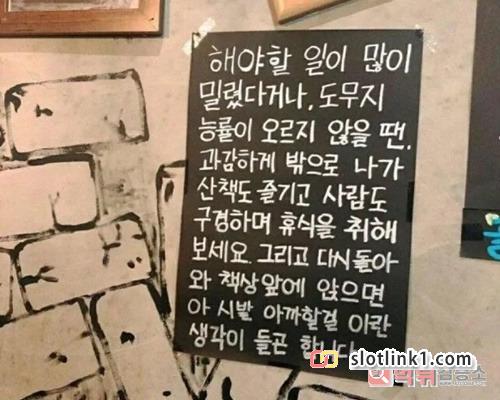 해야할 일이 많이
밀렸다거나, 도무지
능률이 오르지 않을 땐,
과감하게 밖으로 나가
산책도 즐기고 사람도
구경하며 휴식을 취해
보세요. 그리고 다시 돌아
와 책상앞에 앉으면
아 시발 아까할걸 이란
생각이 들곤 합니다
slotlink1.com